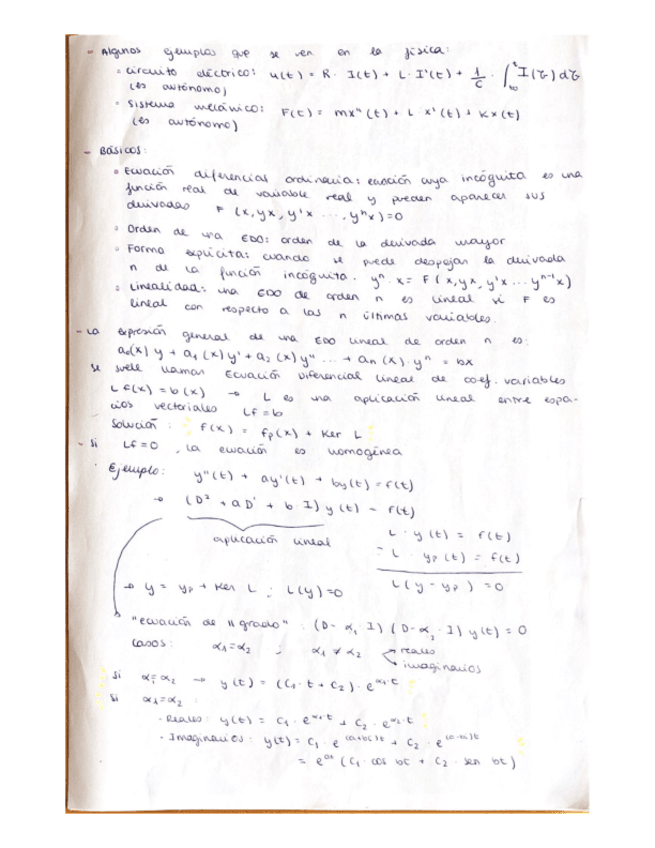 - Algunos ejemplos que se ven en la física:
◦ circuito eléctrico: u(t) = R · I(t) + L · I'(t) + 1/C · ∫ I(τ) dτ
(es autónomo)
◦ Sistema mecánico: F(t) = mx''(t) + L x'(t) + Kx(t)
(es autónomo)
- BÁSICOS:
◦ Ecuación diferencias ordinaria: ecuación cuya incógnita es una
función real de variable real y pueden aparecer sus
derivadas F (x, yx, y'x ..., yⁿx) = 0
◦ Orden de una EDO: orden de la derivada mayor
◦ Forma explícita: cuando se puede despejar la derivada
n de la función incógnita. yⁿ·x = F(x, yx, y'x ... yⁿ⁻¹x)
◦ Linealidad: una EDO de orden n es lineal si F es
lineal con respecto a las n últimas variables.
- La expresión general de una EDO lineal de orden n es:
a₀(x) y + a₁(x) y' + a₂(x) y'' ... + aₙ(x) · yⁿ = bx
se suele llamar Ecuación Diferencial lineal de coef. variables
L f(x) = b(x) → L es una aplicación lineal entre espa-
cios vectoriales Lf = b
Solución: f(x) = fp(x) + Ker L
- Si Lf = 0, la ecuación es homogénea
· Ejemplo: y''(t) + ay'(t) + by(t) = f(t)
→ (D² + aD' + b · I) y(t) = f(t)
aplicación lineal
L · y(t) = f(t)
- L · yp(t) = f(t)
L(y - yp) = 0
→ y = yp + Ker L ; L(y) = 0
"ecuación de II grado" : (D - α₁ I) (D - α₂ · I) y(t) = 0
casos: α₁ = α₂ ; α₁ ≠ α₂
reales
imaginarios
Si α₁ = α₂ → y(t) = (C₁ · t + C₂) · e^α₁·t
Si α₁ = α₂ :
· Reales: y(t) = C₁ · e^α₁·t + C₂ · e^α₂·t
· Imaginarios: y(t) = C₁ · e^(a+bi)t + C₂ · e^(a-bi)t
= e^at (C₁ · cos bt + C₂ · sen bt)